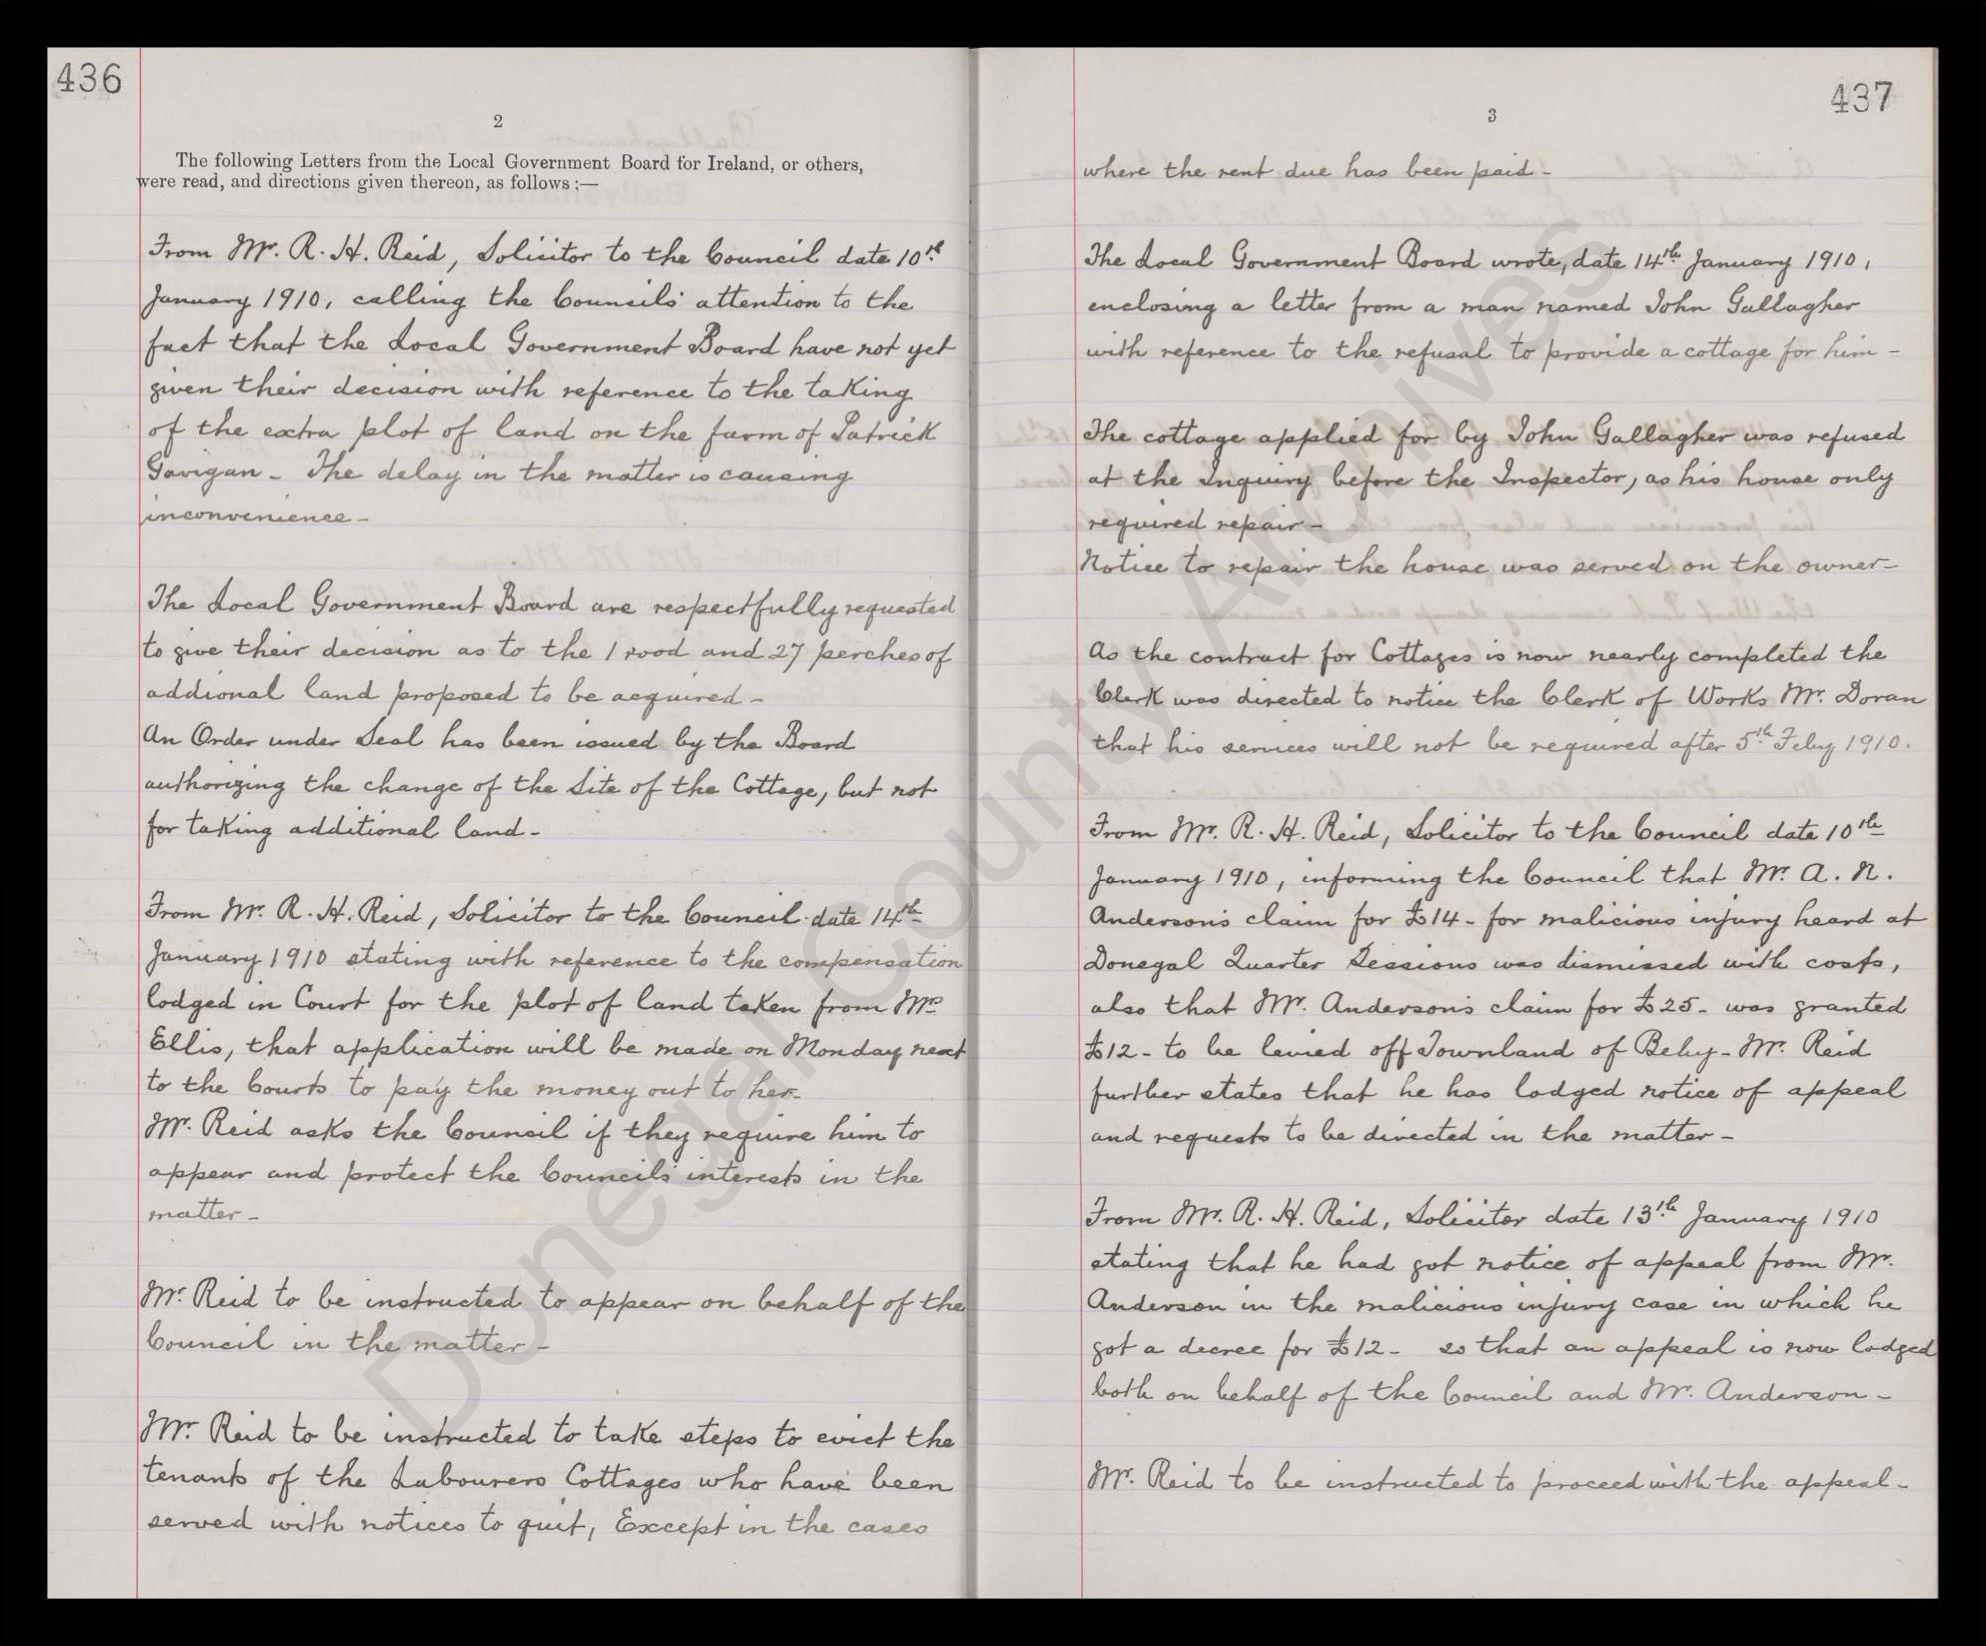 436
2
The following Letters from the Local Government Board for Ireland, or others,
were read, and directions given thereon, as follows :—
From Mr. R. H. Reid, Solicitor to the Council date 10th
January 1910, calling the Councils' attention to the
fact that the Local Government Board have not yet
given their decision with reference to the taking
of the extra plot of land on the farm of Patrick
Gavigan - The delay in the matter is causing
inconvenience -
The Local Government Board are respectfully requested
to give their decision as to the 1 rood and 27 perches of
addional land proposed to be acquired -
An Order under Seal has been issued by the Board
authorizing the change of the Site of the Cottage, but not
for taking additional land -
From Mr. R. H. Reid, Solicitor to the Council date 14th
January 1910 stating with reference to the compensation
lodged in Court for the plot of land taken from Mrs
Ellis, that application will be made on Monday next
to the Courts to pay the money out to her -
Mr. Reid asks the Council if they require him to
appear and protect the Councils' interests in the
matter -
Mr. Reid to be instructed to appear on behalf of the
Council in the matter -
Mr. Reid to be instructed to take steps to evict the
tenants of the Labourers Cottages who have been
served with notices to quit, Except in the cases
437
3
where the rent due has been paid -
The Local Government Board wrote, date 14th January 1910,
enclosing a letter from a man named John Gallagher
with reference to the refusal to provide a cottage for him -
The cottage applied for by John Gallagher was refused
at the Inquiry before the Inspector, as his house only
required repair -
Notice to repair the house was served on the owner -
As the contract for Cottages is now nearly completed the
Clerk was directed to notice the Clerk of Works Mr. Doran
that his services will not be required after 5th Feby 1910.
From Mr. R. H. Reid, Solicitor to the Council date 10th
January 1910, informing the Council that Mr. A. N.
Anderson's claim for £14 - for malicious injury heard at
Donegal Quarter Sessions was dismissed with costs,
also that Mr. Anderson's claim for £25 - was granted
£12 - to be levied off Townland of Behy - Mr. Reid
further states that he has lodged notice of appeal
and requests to be directed in the matter -
From Mr. R. H. Reid, Solicitor date 13th January 1910
stating that he had got notice of appeal from Mr.
Anderson in the malicious injury case in which he
got a decree for £12 - so that an appeal is now lodged
both on behalf of the Council and Mr. Anderson -
Mr. Reid to be instructed to proceed with the appeal -
Donegal County Archives